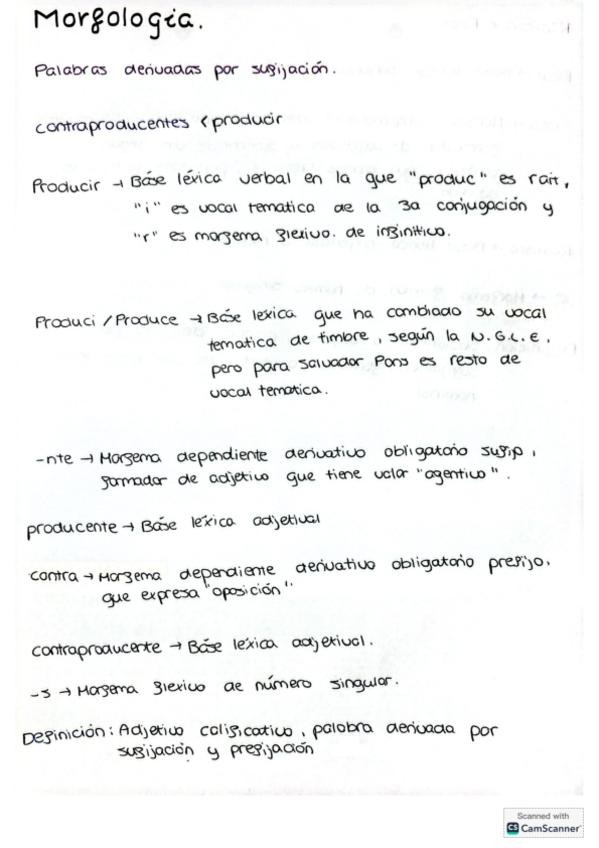 Morfología.
Palabras derivadas por sufijación.
contraproducentes < producir
Producir → Báse léxica verbal en la que "produc" es raít,
"i" es vocal tematica de la 3a conjugación y
"r" es morfema flexivo. de infinitivo.
Produci / Produce → Báse lexica que ha cambiado su vocal
tematica de timbre, según la N.G.L.E.
pero para Salvador Pons es resto de
vocal tematica.
-nte → Morfema dependiente derivativo obligatorio sufijo,
formador de adjetivo que tiene valor "agentivo".
producente → Báse léxica adjetival
contra → Morfema dependiente derivativo obligatorio prefijo.
que expresa "oposición"
contraproducente → Báse léxica adjetival.
-s → Morfema flexivo de número singular.
Definición: Adjetivo calificativo, palabra derivada por
sufijación y prefijación
Scanned with
CS CamScanner